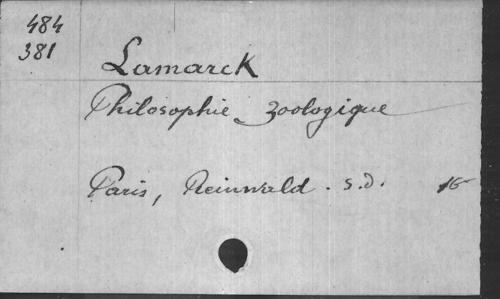 484
381
Lamarck
Philosophie zoologique
Paris, Reinwald. s.d. 16